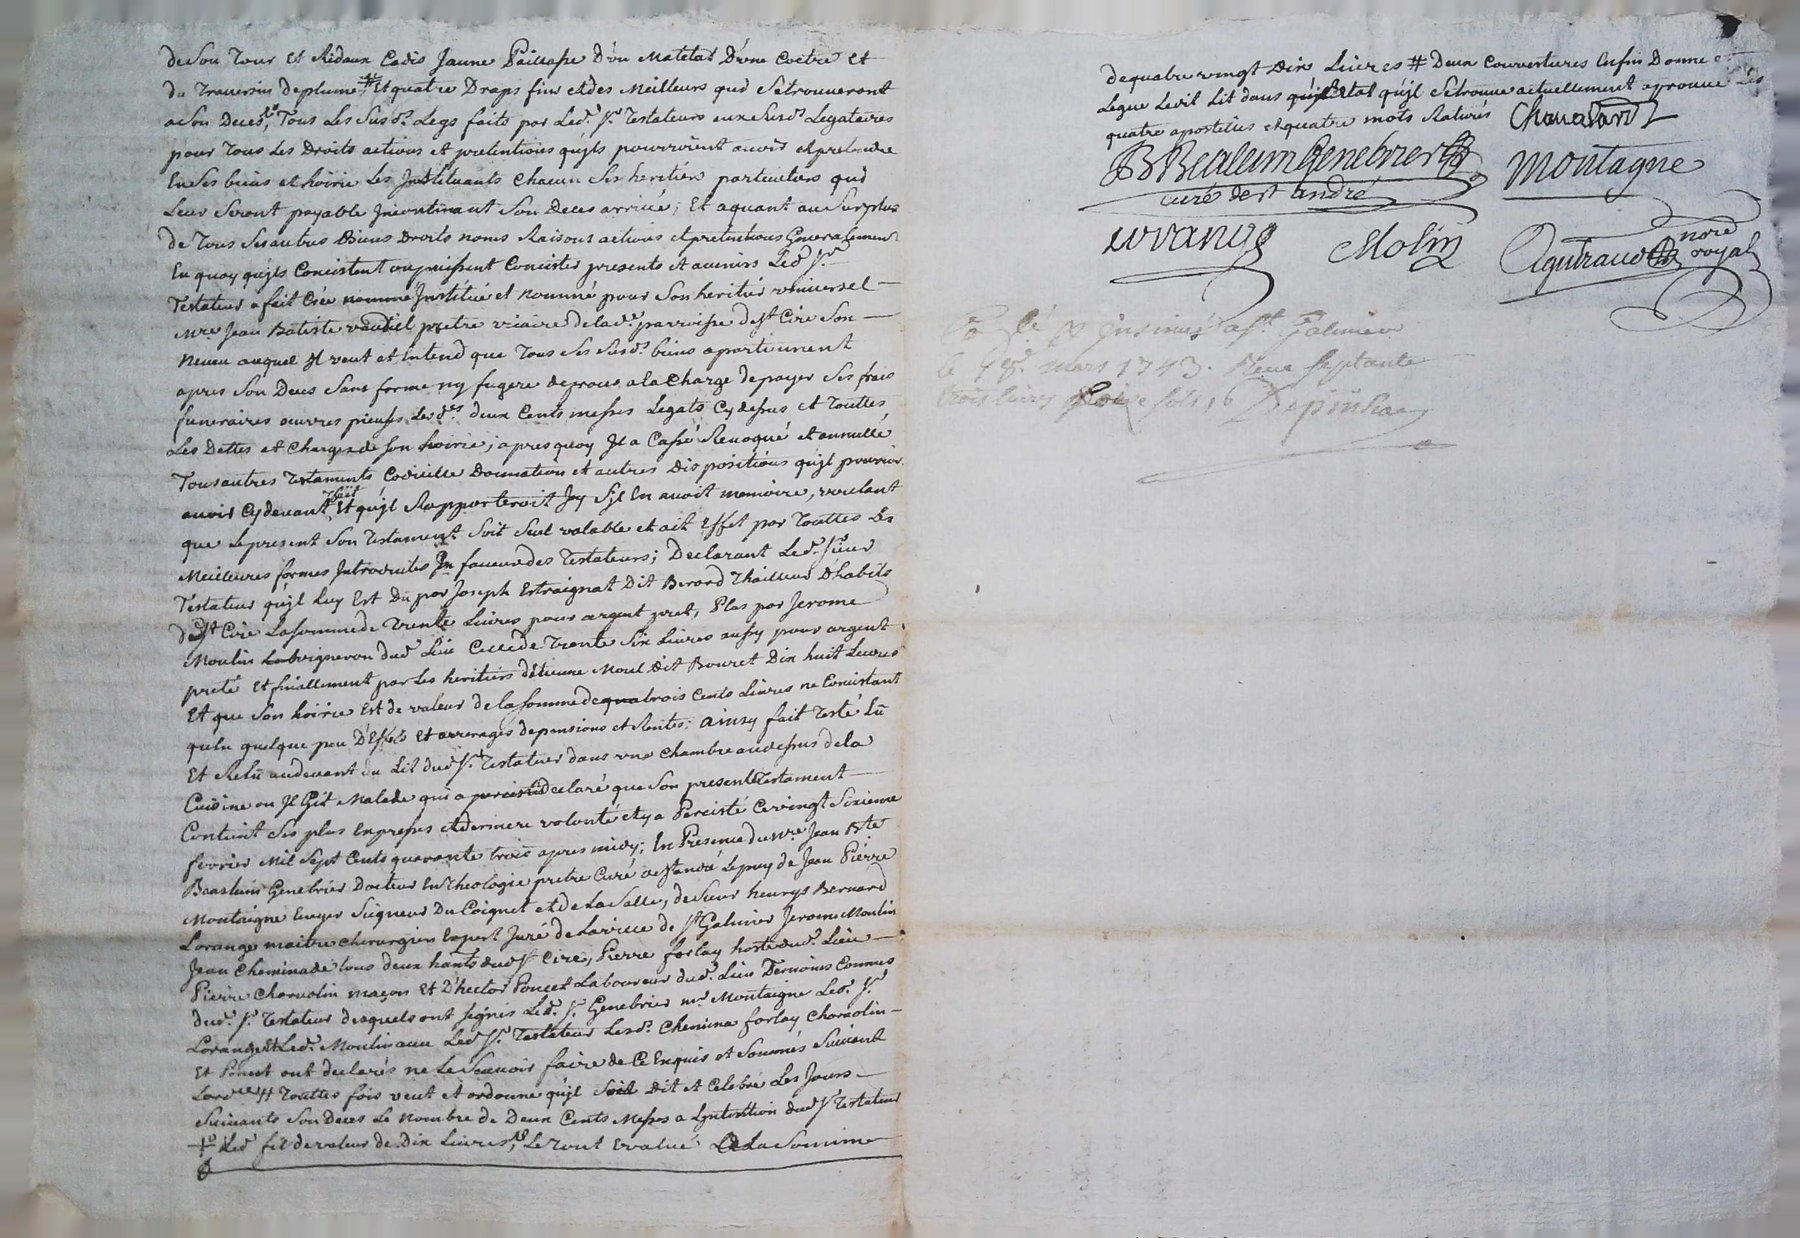 de Son Tour Et Ridaux Cadis Jaune Paillasse D'un Matelat D'une Coetre et
du Traversin de plume # Et quatre Draps fins et des Meilleurs qui Se trouveront
a Son Deces, Tous Les Susd. Legs faits par Led. Sr. Testateur aux Susd. Legataires
pour Tous Les Droits actions et pretentions qu'jls pourroient avoir et pretendre
En Ses biens et hoirie Les Jnstituants Chacun Ses heritiers particuliers qui
Leur Seront payable Jncontinant Son Deces arrivé; Et aquant au Surplus
de Tous Ses autres Biens Droits noms Raisons actions et pretentions Generalement
En quoy qu'jls Concistent ou puissent Concister presents et avenirs Led. Sr.
Testateur a fait Créé nommé Jnstitué et nommé pour Son heritier universel
Mre Jean Batiste pretre vicaire de lad. parroisse de St Cire Son
Neveu auquel Jl veut et Entend que Tous Ses Susd. biens apartiennent
apres Son Deces Sans forme ny fugere de proces a la Charge de payer Ses frais
funeraires œuvres pieuses Lesd. deux Cents messes Legats Cy dessus et Touttes
Les Dettes et Charges de Son hoirie; apres quoy Jl a Cassé Revoqué et annullé
Tous autres Testaments Codicille Donnation et autres Dispositions qu'jl pourroit
avoir Cy devant fait Et qu'jl Rapporteroit Jcy S'jl En avoit memoire, voulant
que Le present Son Testament Soit Seul valable et ait Effet par Touttes Les
Meilleures formes Jntroduites Jn faveur des Testateurs; Declarant Led. Sieur
Testateur qu'jl Luy Est Du par Joseph Estraignat Dit Berard Thailleur D'habits
de St Cire La Somme de Trente Livres pour argent pret, Plus par Jerome
Moulin vigneron dud. Lieu Celle de Trente Six Livres aussy pour argent
preté Et finallement par Les heritiers d'Etienne Morel Dit Bouret Dix huit Livres
Et que Son hoirie Est de valeur de la Somme de qua trois Cents Livres ne Concistant
qu'En quelque peu D'Effets Et arrerages de pensions et Rentes: ainsy fait Testé Lû
Et Relû audevant du Lit dud. Sr. Testateur dans une Chambre audessus de la
Cuisine ou Jl Git Malade qui a declaré que Son present Testament
Contient Ses plus Expresses et derniere volonté et y a Percisté Ce vingt Sixieme
fevrier Mil Sept Cents quarante trois apres midy; En Presence du Mre Jean Bte
Bealum Genebrier Docteur En Theologie pretre Curé de St andré Le puy de Jean Pierre
Montaigne Ecuyer Seigneur Du Coignet et de La Salle, de Sieur henrys Bernard
Lorange maitre chirurgien Expert Juré de La ville de St Galmier Jerome Moulin
Jean Cheminade tous deux hants dud. St Cire, Pierre forlay hoste dud. Lieu
Pierre Charvolin maçon Et D'hector Poncet Laboureur dud. Lieu Temoins Connus
dud. Sr. Testateur desquels ont signés Led. Sr. Genebrier Mr. Montaigne Led. Sr.
Lorange Et Led. Moulin avec Led. Sr. Testateur Lesd. Chemina forlay Charvolin
Et Poncet ont declarés ne Le Scavoir faire de Ce Enquis et Sommés Suivant
Lord.ce # Touttes fois veut et ordonne qu'jl Soit Dit et Celebré Les Jours
Suivants Son Deces Le Nombre de Deux Cents Messes a Lyntention dud. Sr. Testateur
Led. fil de valeur de Dix Livres, Le tout Evalué a La Somme
de quatre vingt Dix Livres # Deux Couvertures Enfin Donne et
Legue Led. Lit dans Etat qu'jl Se trouve actuellement aprouvé Les
quatre apostilles et quatre mots Raturés Chavatard
BBealum Genebrier
curé de st andré
Montagne
Lorange
Molin
Aguiraud nore royal
Con.lé & Jnsinué a St Galmier
le mars 1743. Reçu Septante
trois livres Seize sols 6 Depinhac